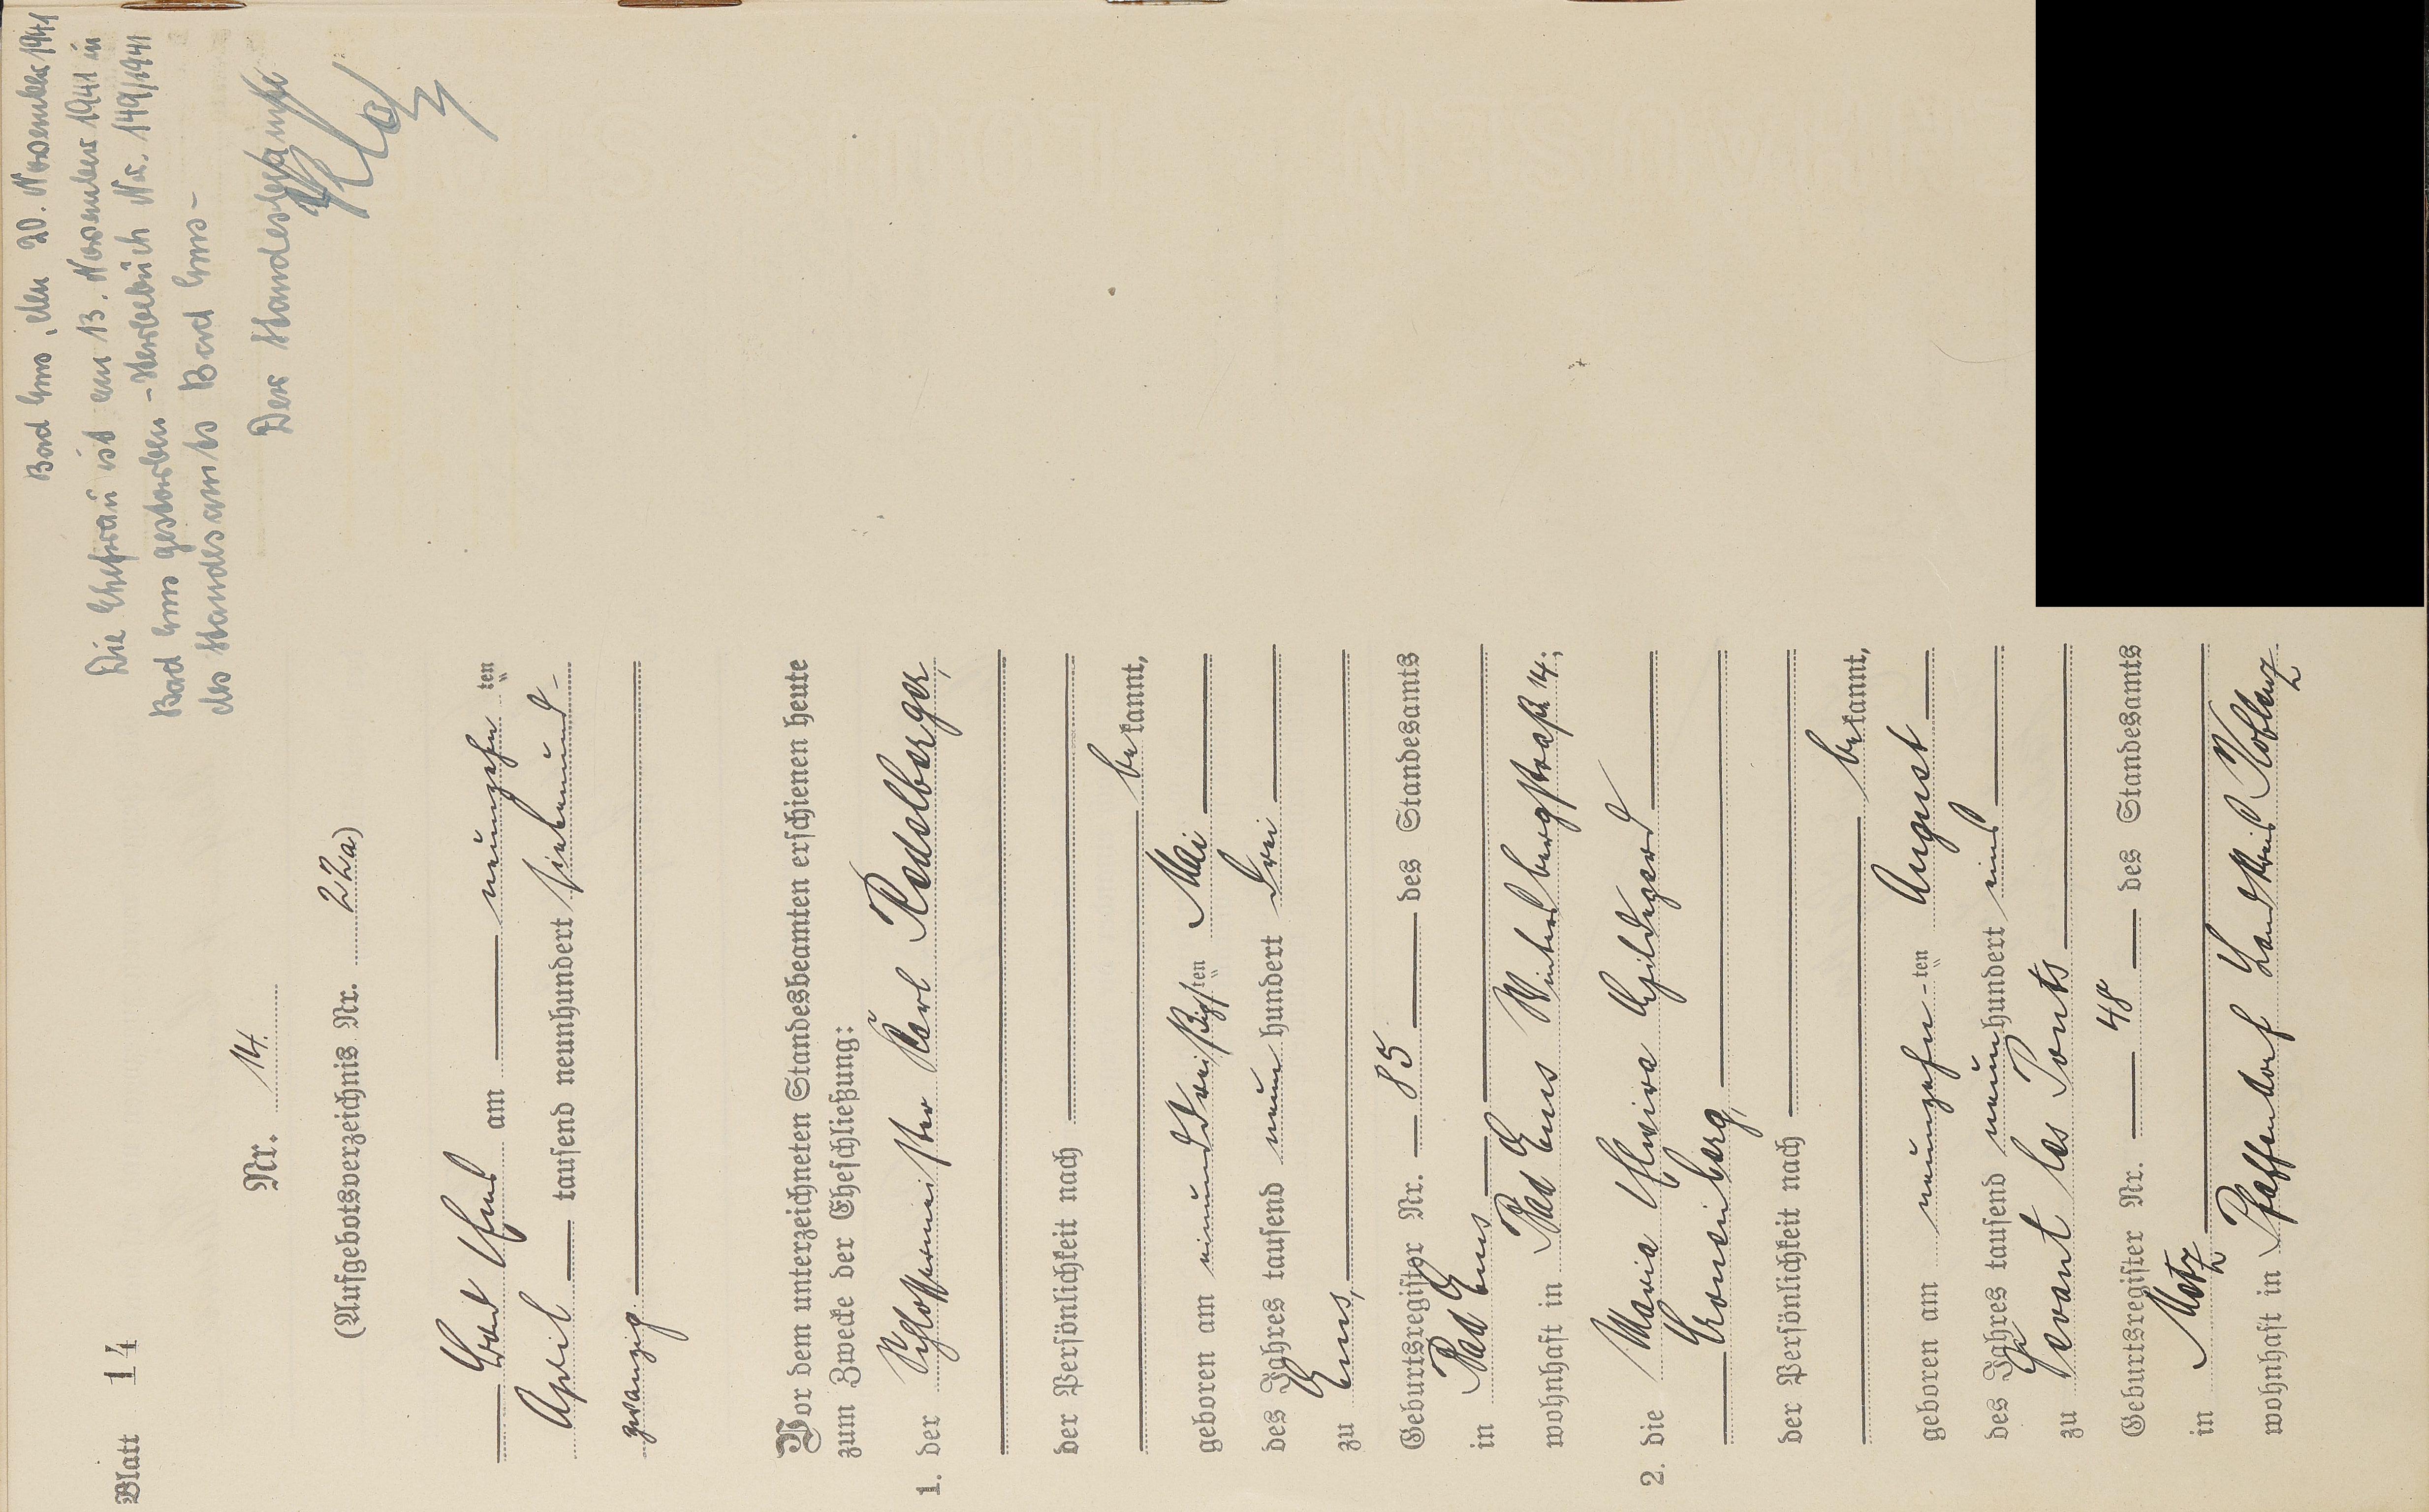 Bad Ems, den 20. November 1941
Die Ehefrau ist am 13. November 1941 in
Bad Ems gestorben - Sterbebuch Nr. 149/1941
des Standesamts Bad Ems -
Der Standesbeamte
Blatt 14
Nr. 14.
(Aufgebotsverzeichnis Nr. 22a)
Bad Ems am neunzehn ten
April tausend neunhundert siebenund-
zwanzig.
Vor dem unterzeichneten Standesbeamten erschienen heute
zum Zwecke der Eheschließung:
1. der Schlossermeister Karl Redelberger,
der Persönlichkeit nach
bekannt,
geboren am einunddreißigsten Mai
des Jahres tausend neun hundert drei
zu Ems,
Geburtsregister Nr. 85 des Standesamts
in Bad Ems
wohnhaft in Bad Ems Wintersbergstraße 14.;
2. die Maria Elvira Hildegard
Cronenberg,
der Persönlichkeit nach
bekannt,
geboren am neunzehn-ten August
des Jahres tausend neunhundert eins
zu Devant les Ponts
Geburtsregister Nr. 48 des Standesamts
in Metz
wohnhaft in Pfaffendorf Landkreis Koblenz